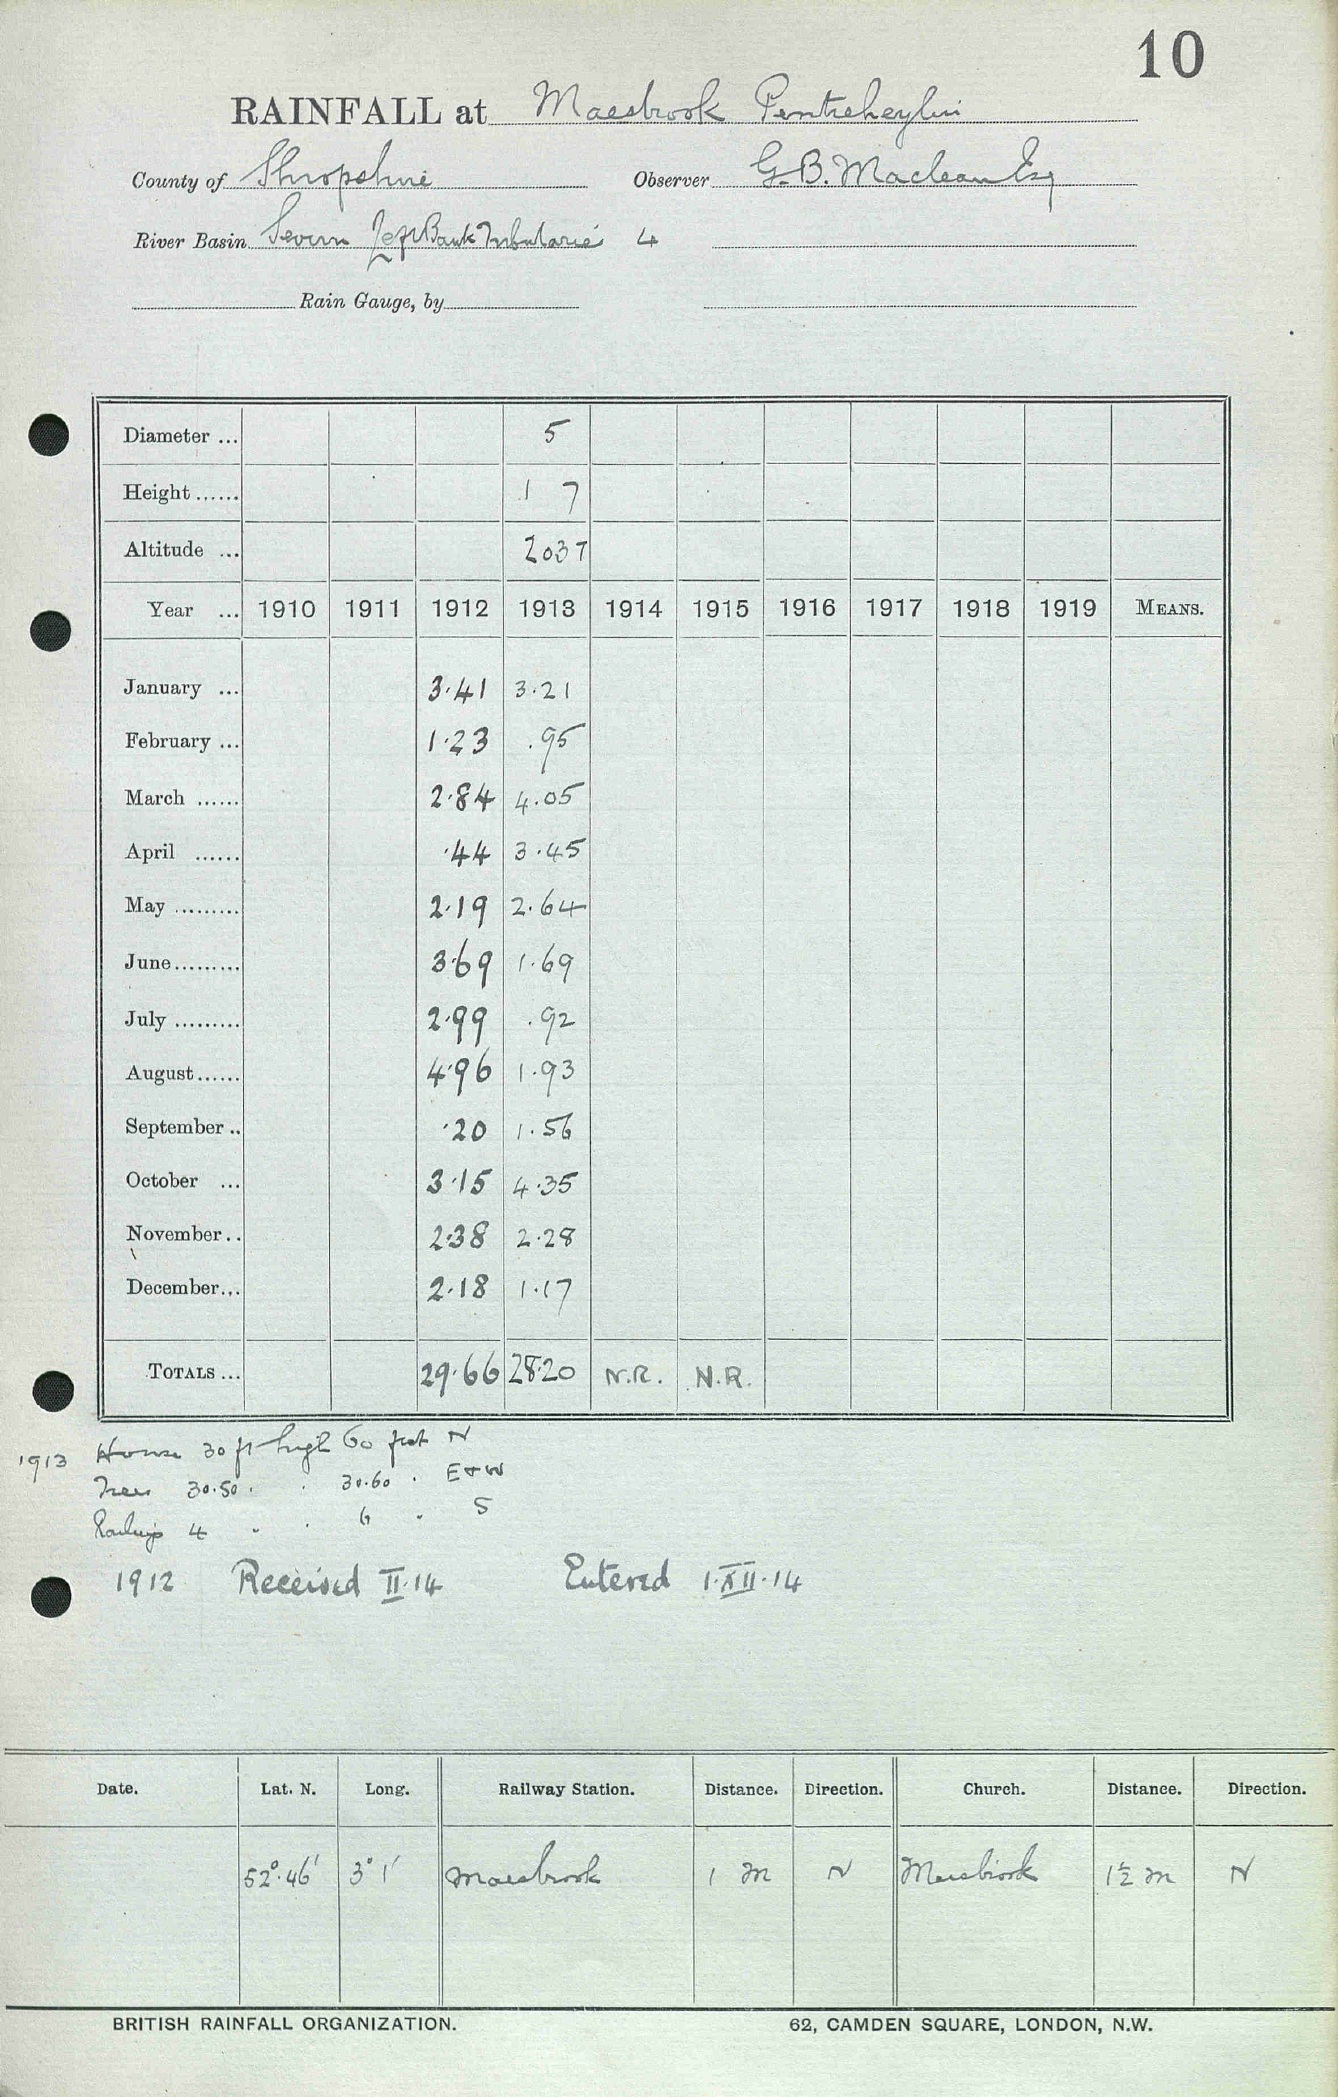 10
RAINFALL at Maesbrook Pentreheylin
County of Shropshire Observer G. B. Maclean Esq
River Basin Severn Left Bank Tributaries 4
Rain Gauge, by
Diameter ... 5
Height ...... 1 7
Altitude ... 203 T
Year ... 1910 1911 1912 1913 1914 1915 1916 1917 1918 1919 MEANS.
January ... 3.41 3.21
February ... 1.23 .95
March ...... 2.84 4.05
April ...... .44 3.45
May ......... 2.19 2.64
June ......... 3.69 1.69
July ......... 2.99 .92
August ...... 4.96 1.93
September .. .20 1.56
October ... 3.15 4.35
November .. 2.38 2.28
December ... 2.18 1.17
TOTALS ... 29.66 28.20 N.R. N.R.
1913 House 30 ft high 60 feet N
Trees 30.50 . . 30.60 . E & W
Railings 4 " . 6 " S
1912 Received II.14 Entered 1.XII.14
Date. Lat. N. Long. Railway Station. Distance. Direction. Church. Distance. Direction.
52°.46' 3° 1' Maesbrook 1 m N Maesbrook 1½ m N
BRITISH RAINFALL ORGANIZATION. 62, CAMDEN SQUARE, LONDON, N.W.